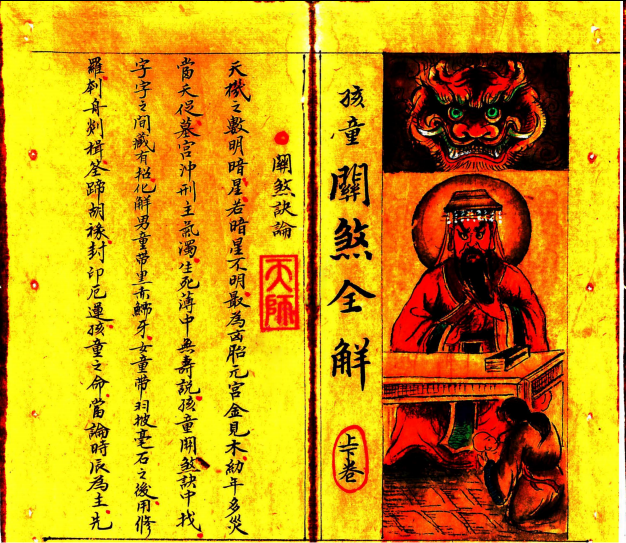 孩童關煞全解
上下卷
關煞訣論
天師
天機之數明暗星若暗星不明最為凶胎元宮金見木幼年多災
當天從墓宮沖刑主氣濁生死薄中無壽説孩童關煞訣中找
字字之間藏有招化解男童帶黑赤鯞牙女童帶羽披毫石之後用修
羅刹舟刿楫筌蹄胡祿封印厄運孩童之命當論時辰為主先